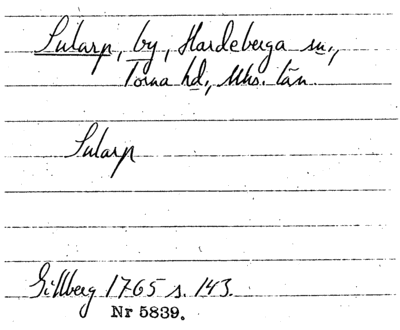 Sularp, by, Hardeberga sn.,
Torna hd., Mhs. län.
Sularp
Gillberg 1765 s. 143.
Nr 5839.